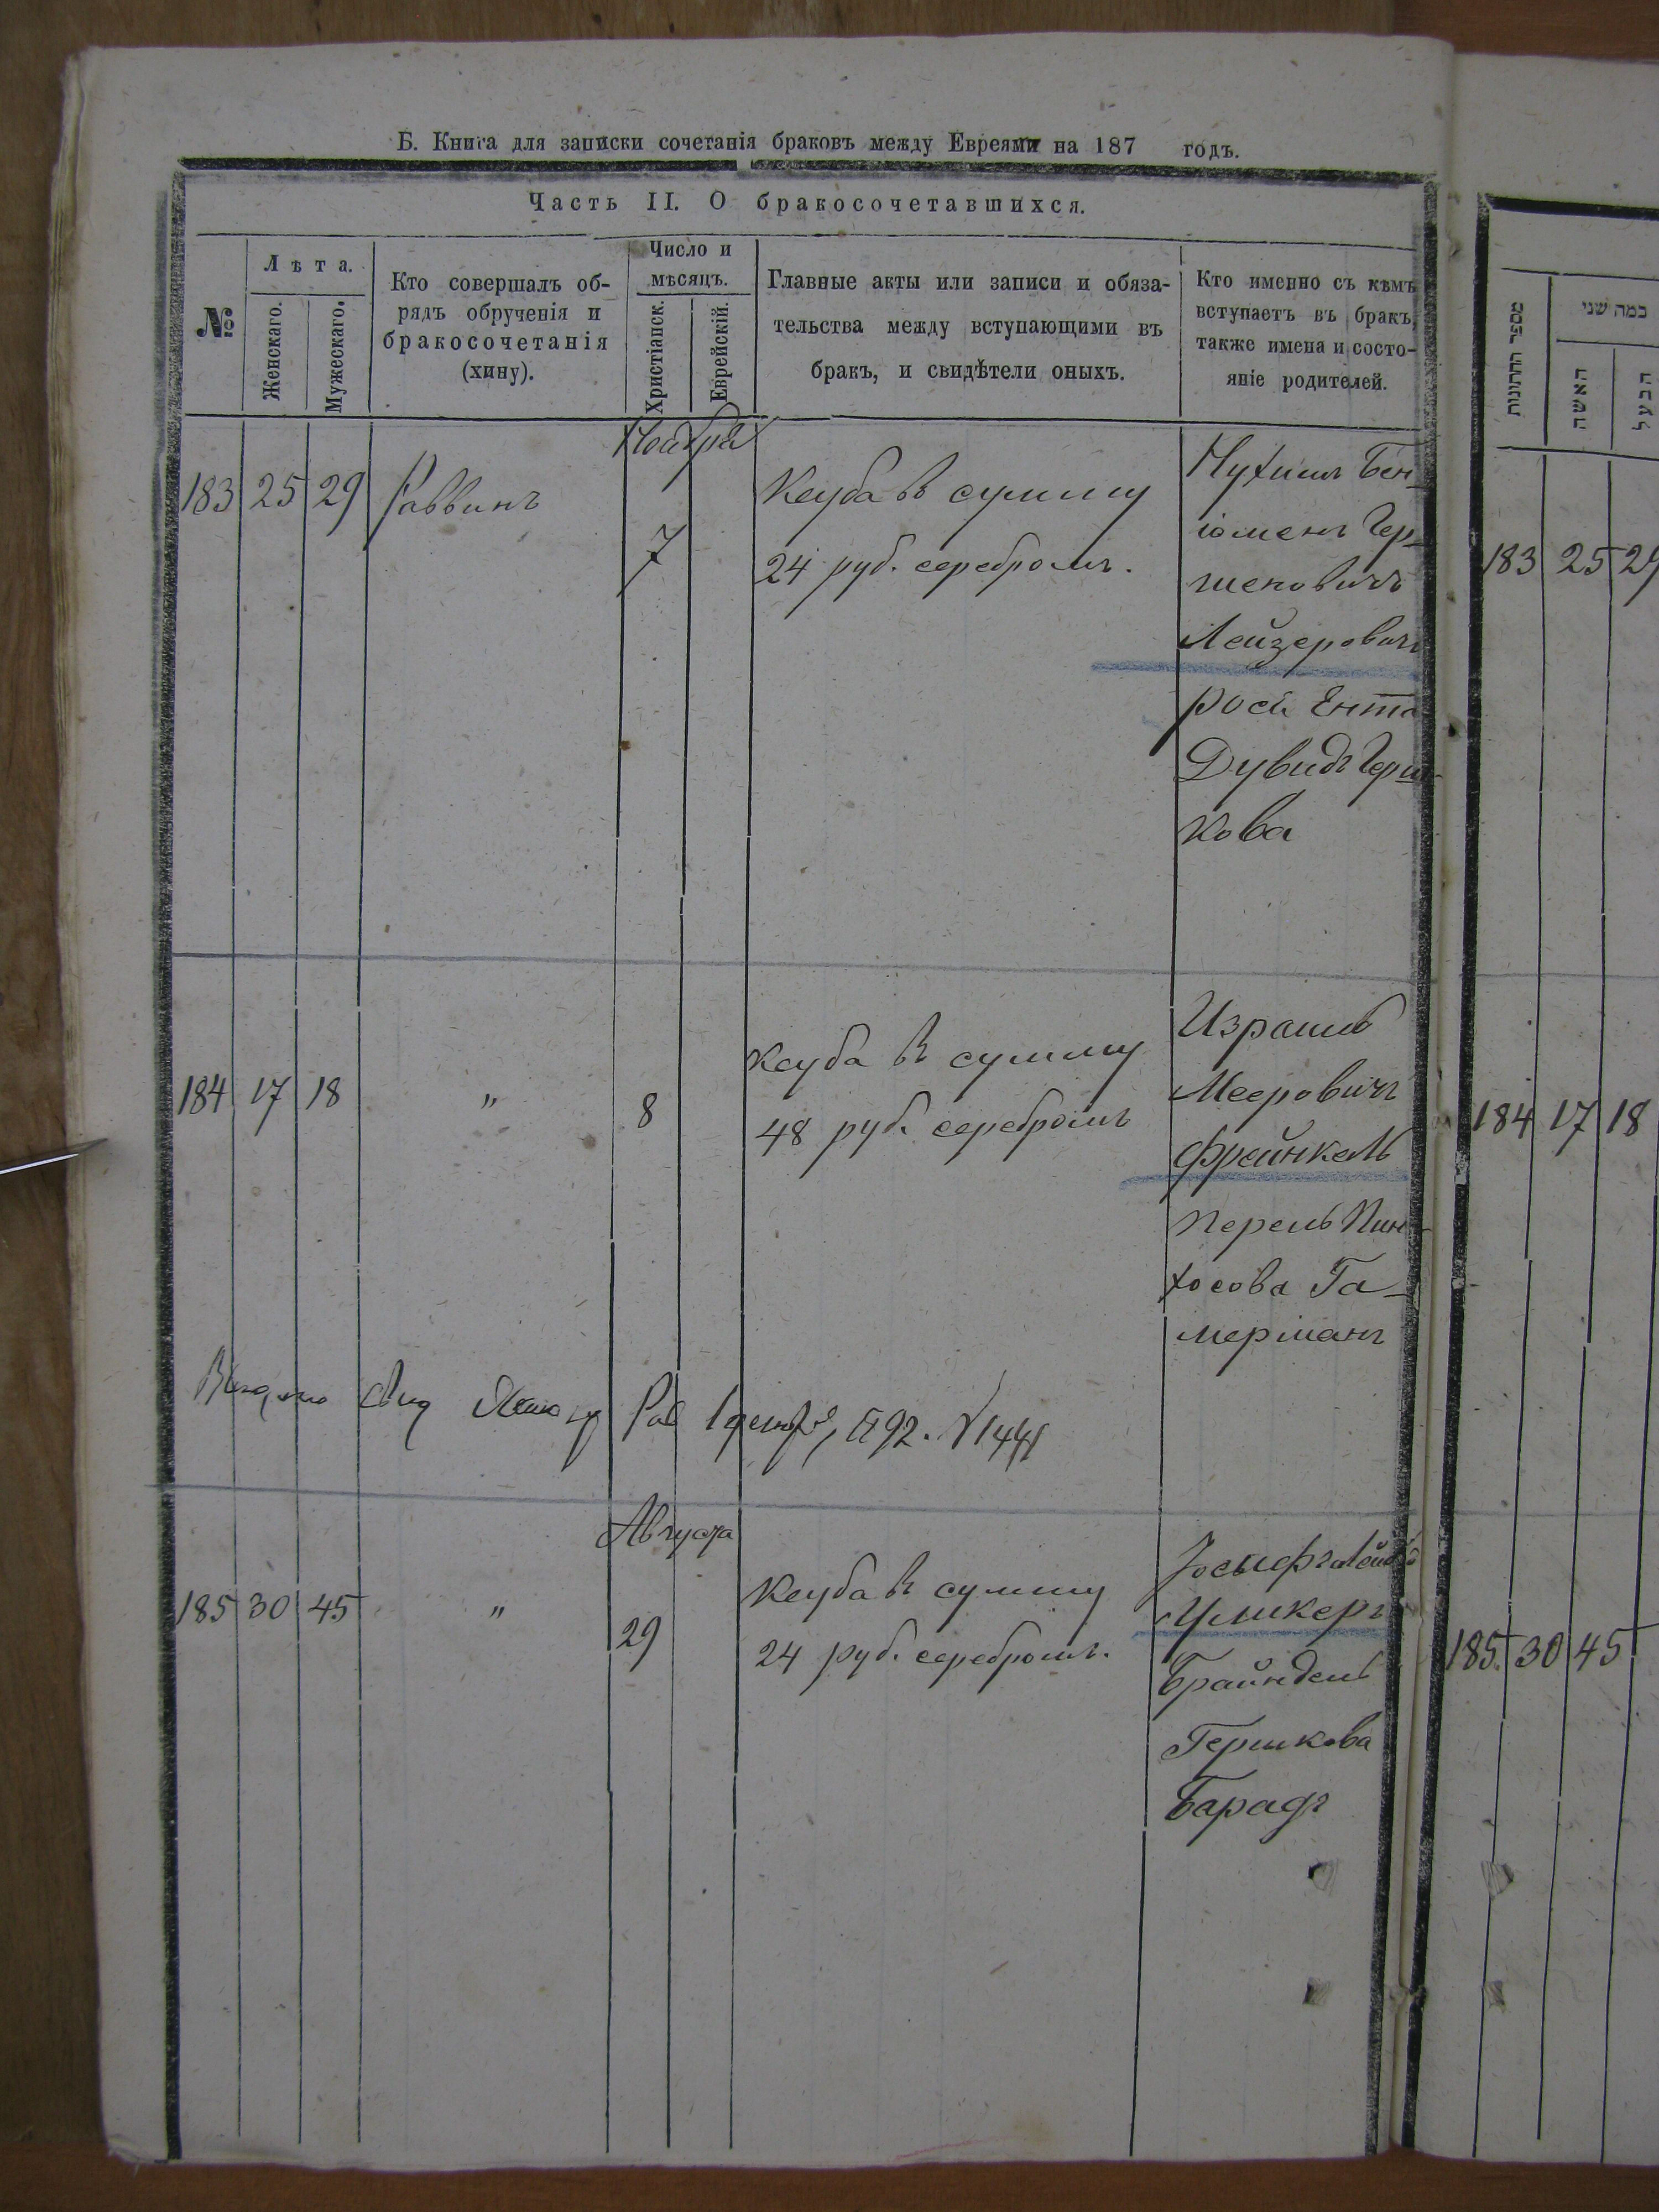 Б. Книга для записки сочетанія браковъ между Евреями на 187 годъ.
Часть II. О бракосочетавшихся.
№
Лѣта.
Женскаго.
Мужескаго.
Кто совершалъ об-
рядъ обрученія и
бракосочетанія
(хину).
Число и
мѣсяцъ.
Христіанск.
Еврейскій.
Главные акты или записи и обяза-
тельства между вступающими въ
бракъ, и свидѣтели оныхъ.
Кто именно съ кѣмъ
вступаетъ въ бракъ,
также имена и состо-
яніе родителей.
183 25 29 Раввинъ
Ноября
7
Ксуба въ сумму
24 руб. серебромъ.
Нухимъ Бен-
іоменъ Гер-
шковичъ
Лейзеровичъ
Рося Ента
Дувидъ Герш-
кова
184 17 18 " 8
Ксуба въ сумму
48 руб. серебромъ
Израиль
Мееровичъ
Френкель
Перель Пин-
хосова Га-
мерманъ
Рав 92. № 1441
Августа
185 30 45 " 29
Ксуба въ сумму
24 руб. серебромъ.
Іосифъ Лейба
Умикеръ
Брайндель
Гершкова
Барадъ
מספר החתונות
כמה שני
האשה
הבעל
183 25 29
184 17 18
185 30 45